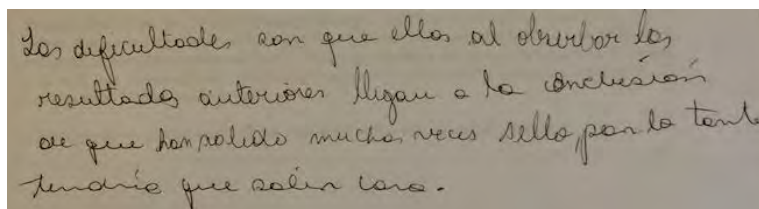 Las dificultades son que ellos al obserbar los
resultados anteriores llegan a la conclusión
de que han salido muchas veces sello, por lo tant
tendría que salir cara.